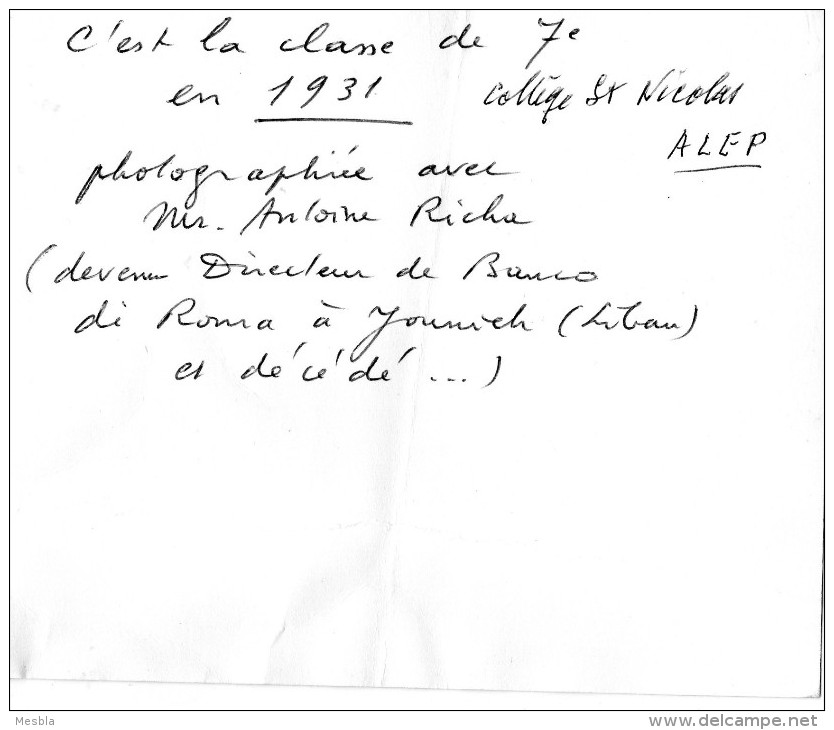 C'est la classe de 7e
en 1931
collège St Nicolas
ALEP
photographiée avec
Mr. Antoine Richa
(devenu Directeur de Banco
di Roma à Jounieh (Liban)
et décédé ...)
Mesbla
www.delcampe.net